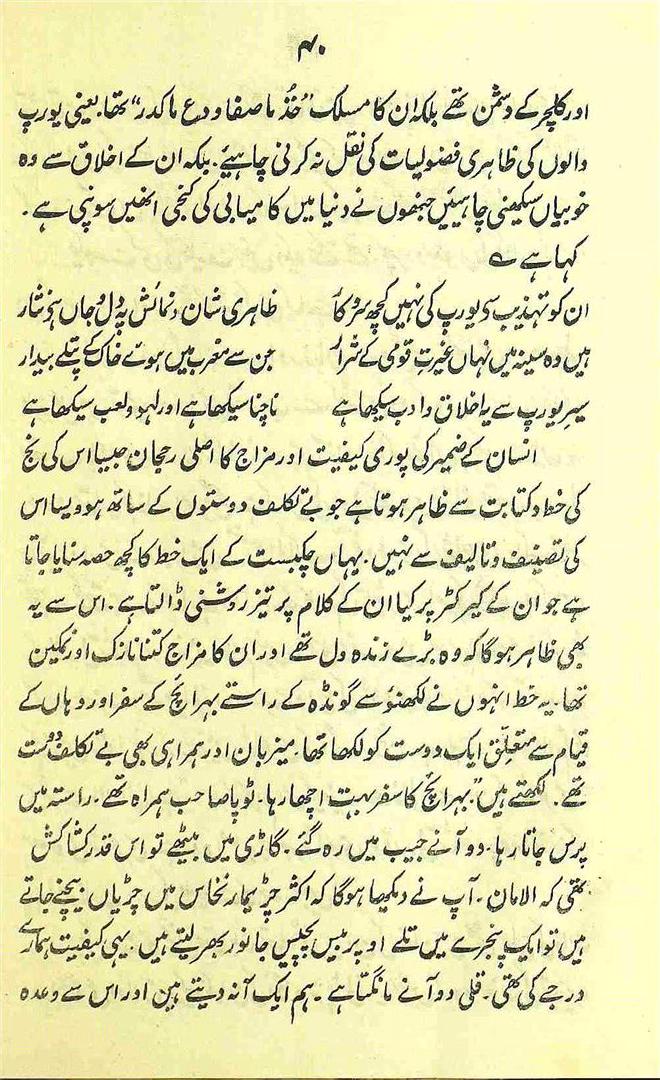 ۴۰
اور کلچر کے دشمن تھے بلکہ ان کا مسلک "خُذ ما صفا و دع ما کدر" تھا۔ یعنی یورپ
والوں کی ظاہری فضولیات کی نقل نہ کرنی چاہیئے۔ بلکہ ان کے اخلاق سے وہ
خوبیاں سیکھنی چاہیئیں جنھوں نے دنیا میں کامیابی کی کنجی انھیں سونپی ہے۔
کہا ہے ؎
ان کو تہذیب سے یورپ کی نہیں کچھ سروکار ظاہری شان و نمائش پہ دل و جاں ہے نثار
ہیں وہ سینہ میں نہاں غیرتِ قومی کے شرار جن سے مغرب میں ہوئے خاک کے پتلے بیدار
سیرِ یورپ سے یہ اخلاق و ادب سیکھا ہے ناچنا سیکھا ہے اور لہو و لعب سیکھا ہے
انسان کے ضمیر کی پوری کیفیت اور مزاج کا اصلی رجحان جیسا اس کی نج
کی خط و کتابت سے ظاہر ہوتا ہے جو بے تکلف دوستوں کے ساتھ ہو ویسا اس
کی تصنیف و تالیف سے نہیں۔ یہاں چکبست کے ایک خط کا کچھ حصہ سنایا جاتا
ہے جو ان کے کیرکٹر پر کیا ان کے کلام پر تیز روشنی ڈالتا ہے۔ اس سے یہ
بھی ظاہر ہوگا کہ وہ بڑے زندہ دل تھے اور ان کا مزاج کتنا نازک اور نمکین
تھا۔ یہ خط انہوں نے لکھنؤ سے گونڈہ کے راستے بہرائچ کے سفر اور وہاں کے
قیام سے متعلق ایک دوست کو لکھا تھا۔ میزبان اور ہمراہی بھی بے تکلف دوست
تھے۔ لکھتے ہیں "بہرائچ کا سفر بہت اچھا رہا۔ ٹوپا صاحب ہمراہ تھے۔ راستہ میں
پرس جاتا رہا۔ دو آنے جیب میں رہ گئے۔ گاڑی میں بیٹھے تو اس قدر کشاکش
تھی کہ الامان۔ آپ نے دیکھا ہوگا کہ اکثر چڑیمار نخاس میں چڑیاں بیچنے جاتے
ہیں تو ایک پنجرے میں تلے اوپر بیس پچیس جانور بھر لیتے ہیں۔ یہی کیفیت ہمارے
درجے کی تھی۔ قلی دو آنے مانگتا ہے۔ ہم ایک آنہ دیتے ہین اور اس سے وعدہ